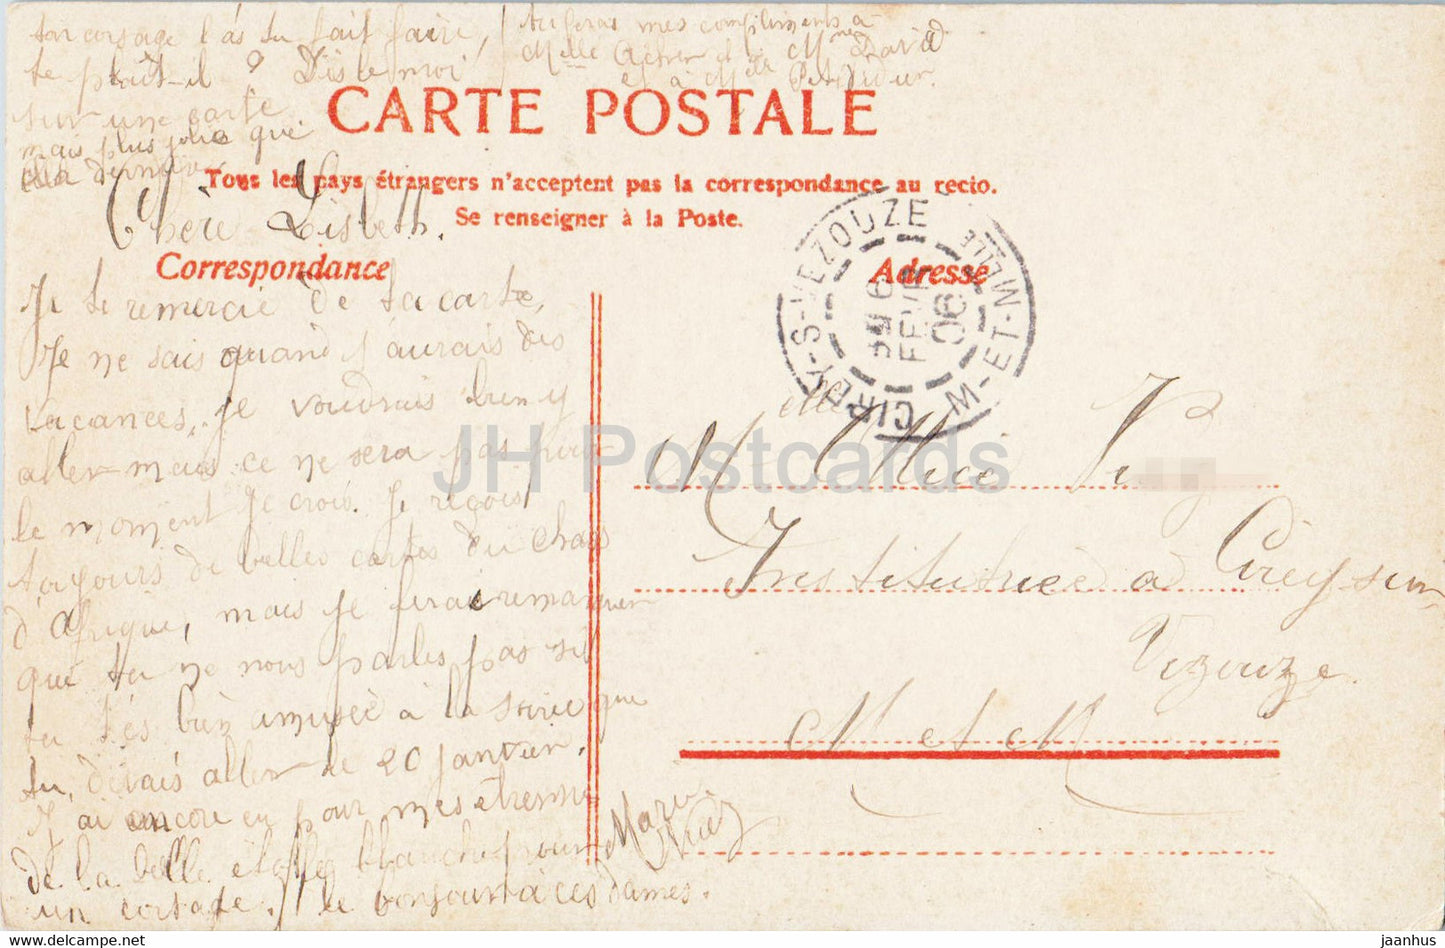 ton corsage l'as tu fait faire,
te plait-il ? Dis le moi
sur une carte
mais plus jolie que
dernière
tu feras mes compliments à
Melle et à Mme David
et à Melle
CARTE POSTALE
Tous les pays étrangers n'acceptent pas la correspondance au recto.
Se renseigner à la Poste.
Correspondance
Adresse
CIREY-S-VEZOUZE
M-ET-MLLE
6
FEVR
06
Chère Lisbeth.
Je te remercie de ta carte,
Je ne sais quand j'aurais des
vacances, je voudrais bien y
aller mais ce ne sera pas pour
le moment je crois. Je reçois
toujours de belles cartes du chass
d'Afrique, mais je ferai remarquer
que tu ne nous parles pas si
tu t'es bien amusée à la soirée que
tu devais aller le 20 janvier.
J'ai encore eu pour mes étrennes
de la belle étoffe blanche pour
un corsage. le bonjour à ces dames.
Marie
Melle Alice
Institutrice à Cirey-sur
Vezouze
M et M
JH Postcards
jaanhus — https://www.jaanhus.com